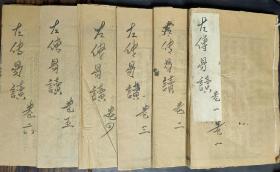 左傳易讀
卷一
卷一
左傳易讀
卷二
左傳易讀
卷三
左傳易讀
卷四
左傳易讀
卷五
左傳易讀
卷六